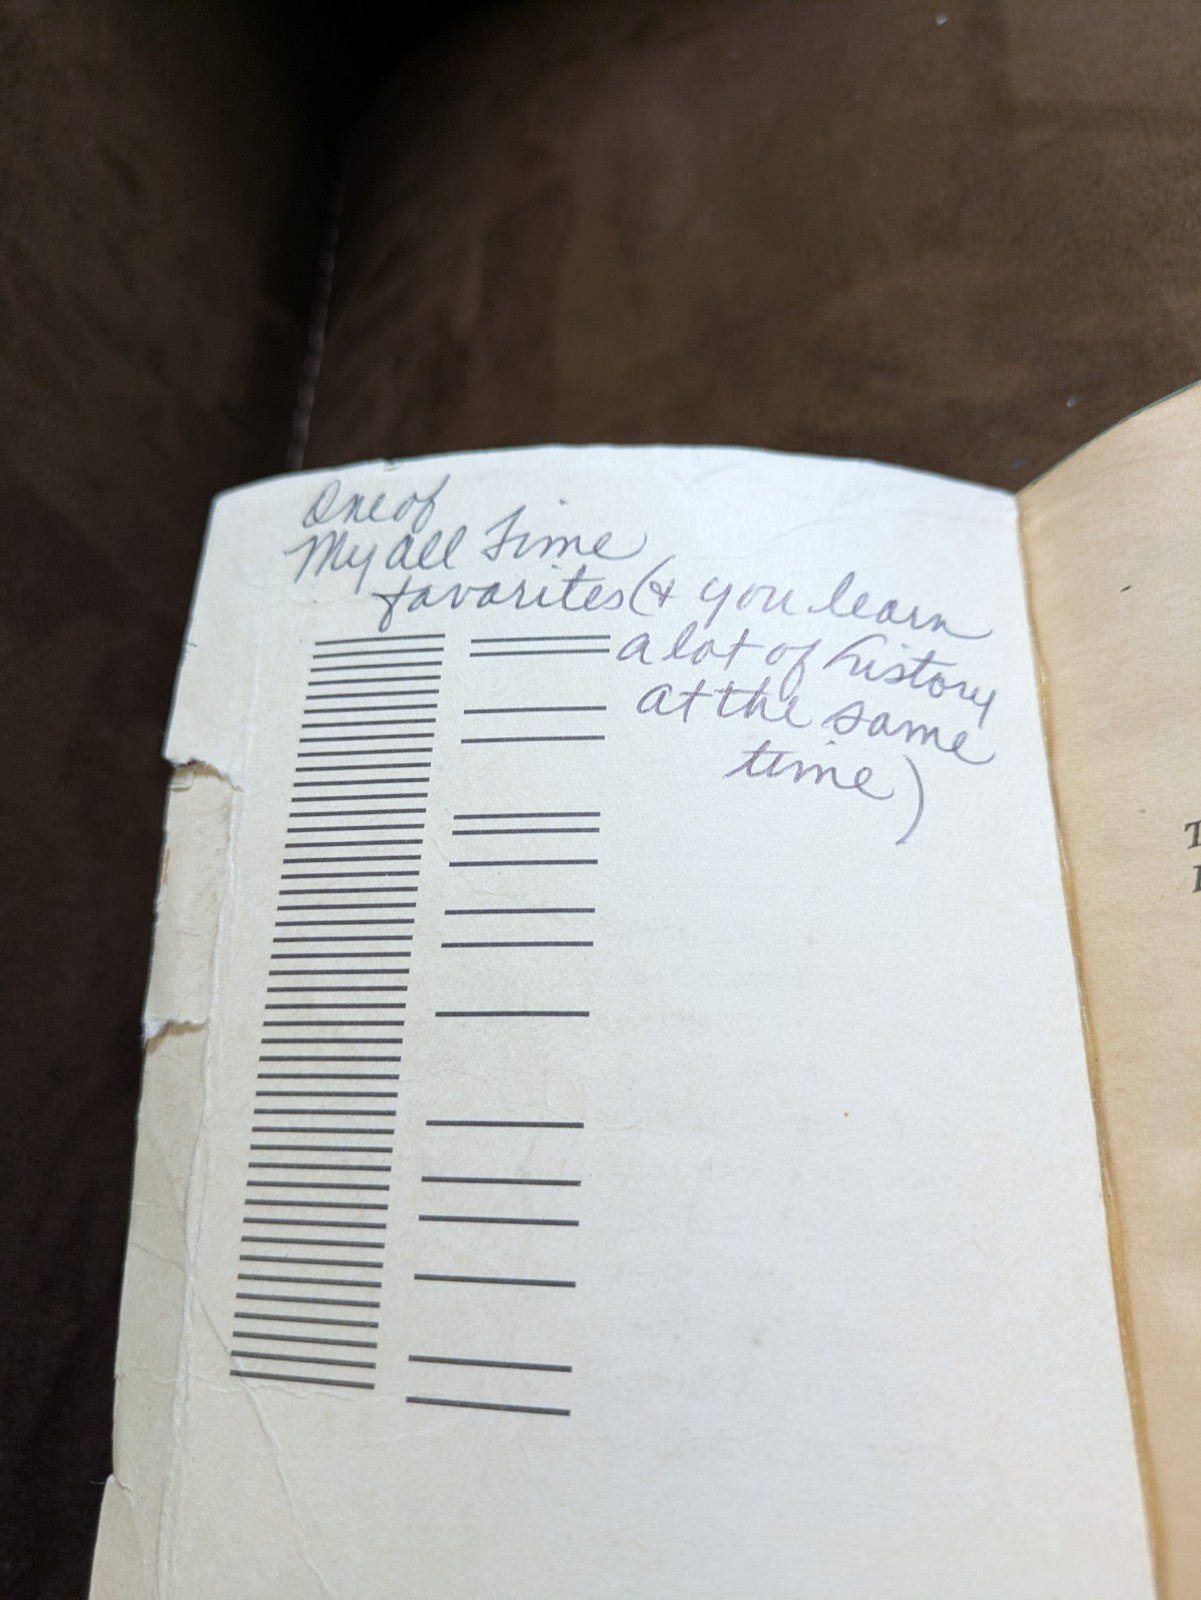 One of
My all Time
favorites (& you learn
a lot of history
at the same
time)